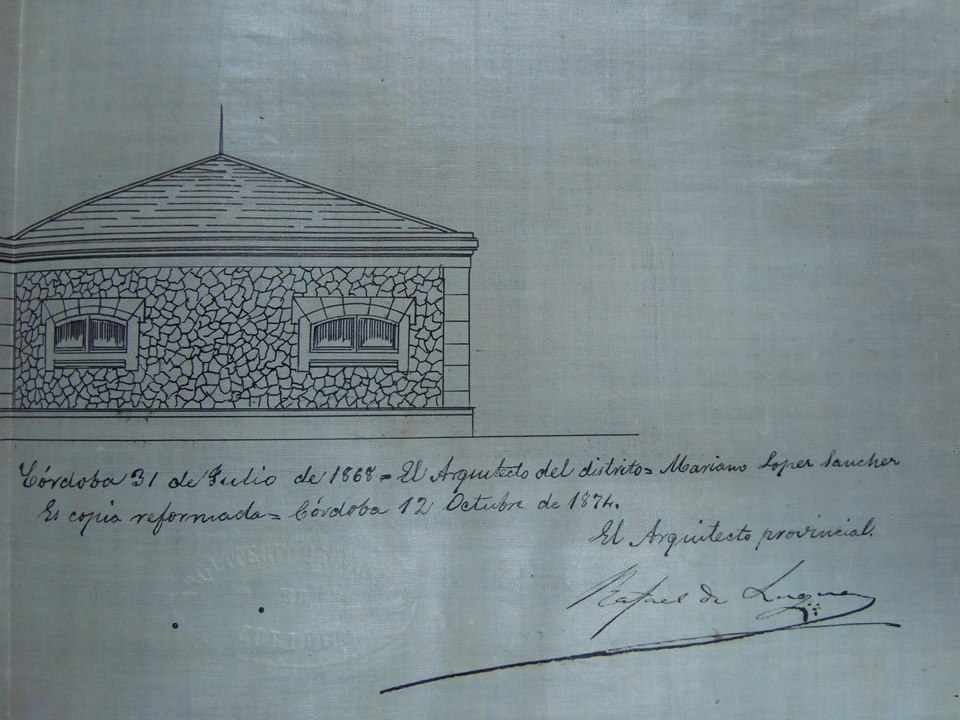 Córdoba 31 de Julio de 1868 = El Arquitecto del distrito = Mariano Lopez Sanchez
Es copia reformada = Córdoba 12 Octubre de 1874.
El Arquitecto provincial.
Rafael de Luque
CORDOBA